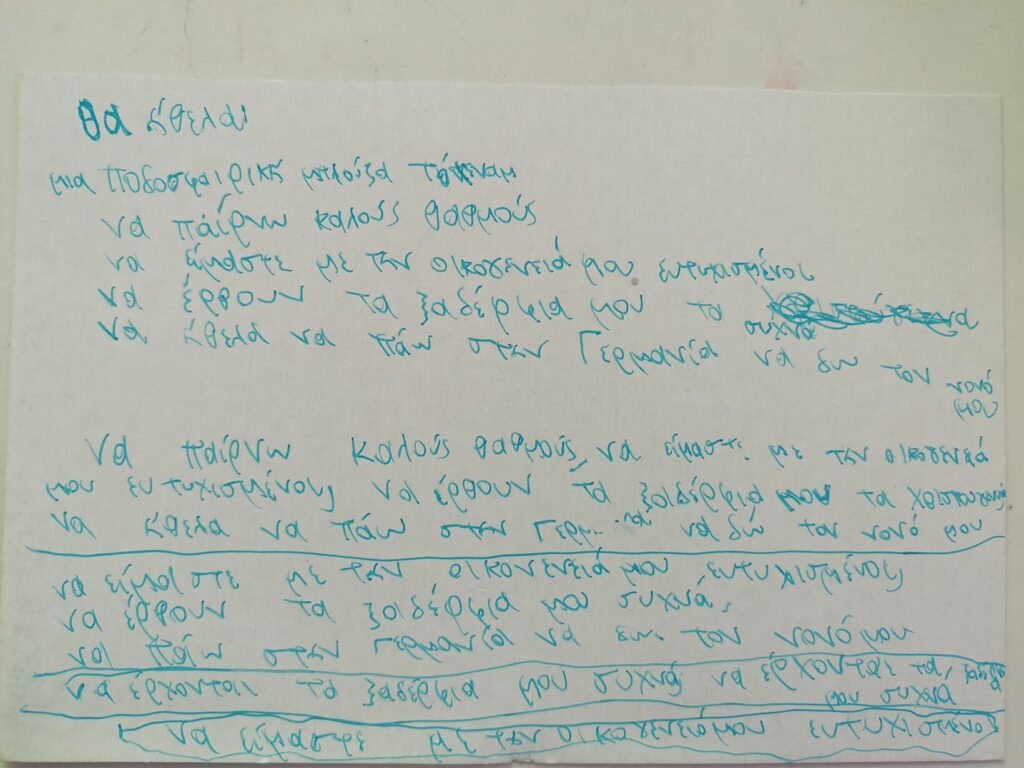 θα ήθελα
μια ποδοσφαιρική μπλούζα
να παίρνω καλούς βαθμούς
να είμαστε με την οικογενειά μου ευτυχισμένοι
να έρθουν τα ξαδέρφια μου τα
συχνα
να ήθελα να πάω στην Γερμανία να δω τον νονό
μου
να παίρνω καλούς βαθμούς, να είμαστε με την οικογενειά
μου ευτυχισμένους, να έρθουν τα ξαδέρφια μου τα
να ήθελα να πάω στην να δώ τον νονό μου
να είμαστε με την οικονενειά μου, ευτυχισμένος,
να έρθουν τα ξαδέρφια μου συχνά,
να πάω στην Γερμανία να τον νονό μου
να έρχονται τα ξαδέρφια μου συχνά, να έρχονται τα,
μου συχνα
να είμαστε με την ευτυχισμένος